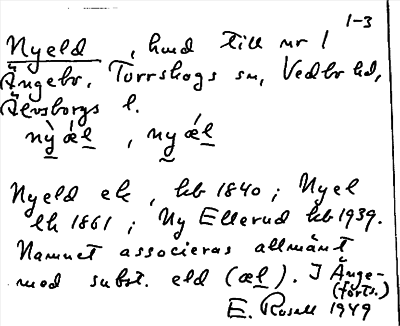 1-3
Nyeld, hmd till nr 1
Ängebr, Torrskogs sn, Vedbo hd,
Älvsborgs l.
nỳǽl, nyǽl
Nyeld ek, hfb 1840; Nyel
lk 1861; Ny Ellerud hfb 1939.
Namnet associeras allmänt
med subst. eld (æl). I Änge-
(forts.)
E. Rosell 1949